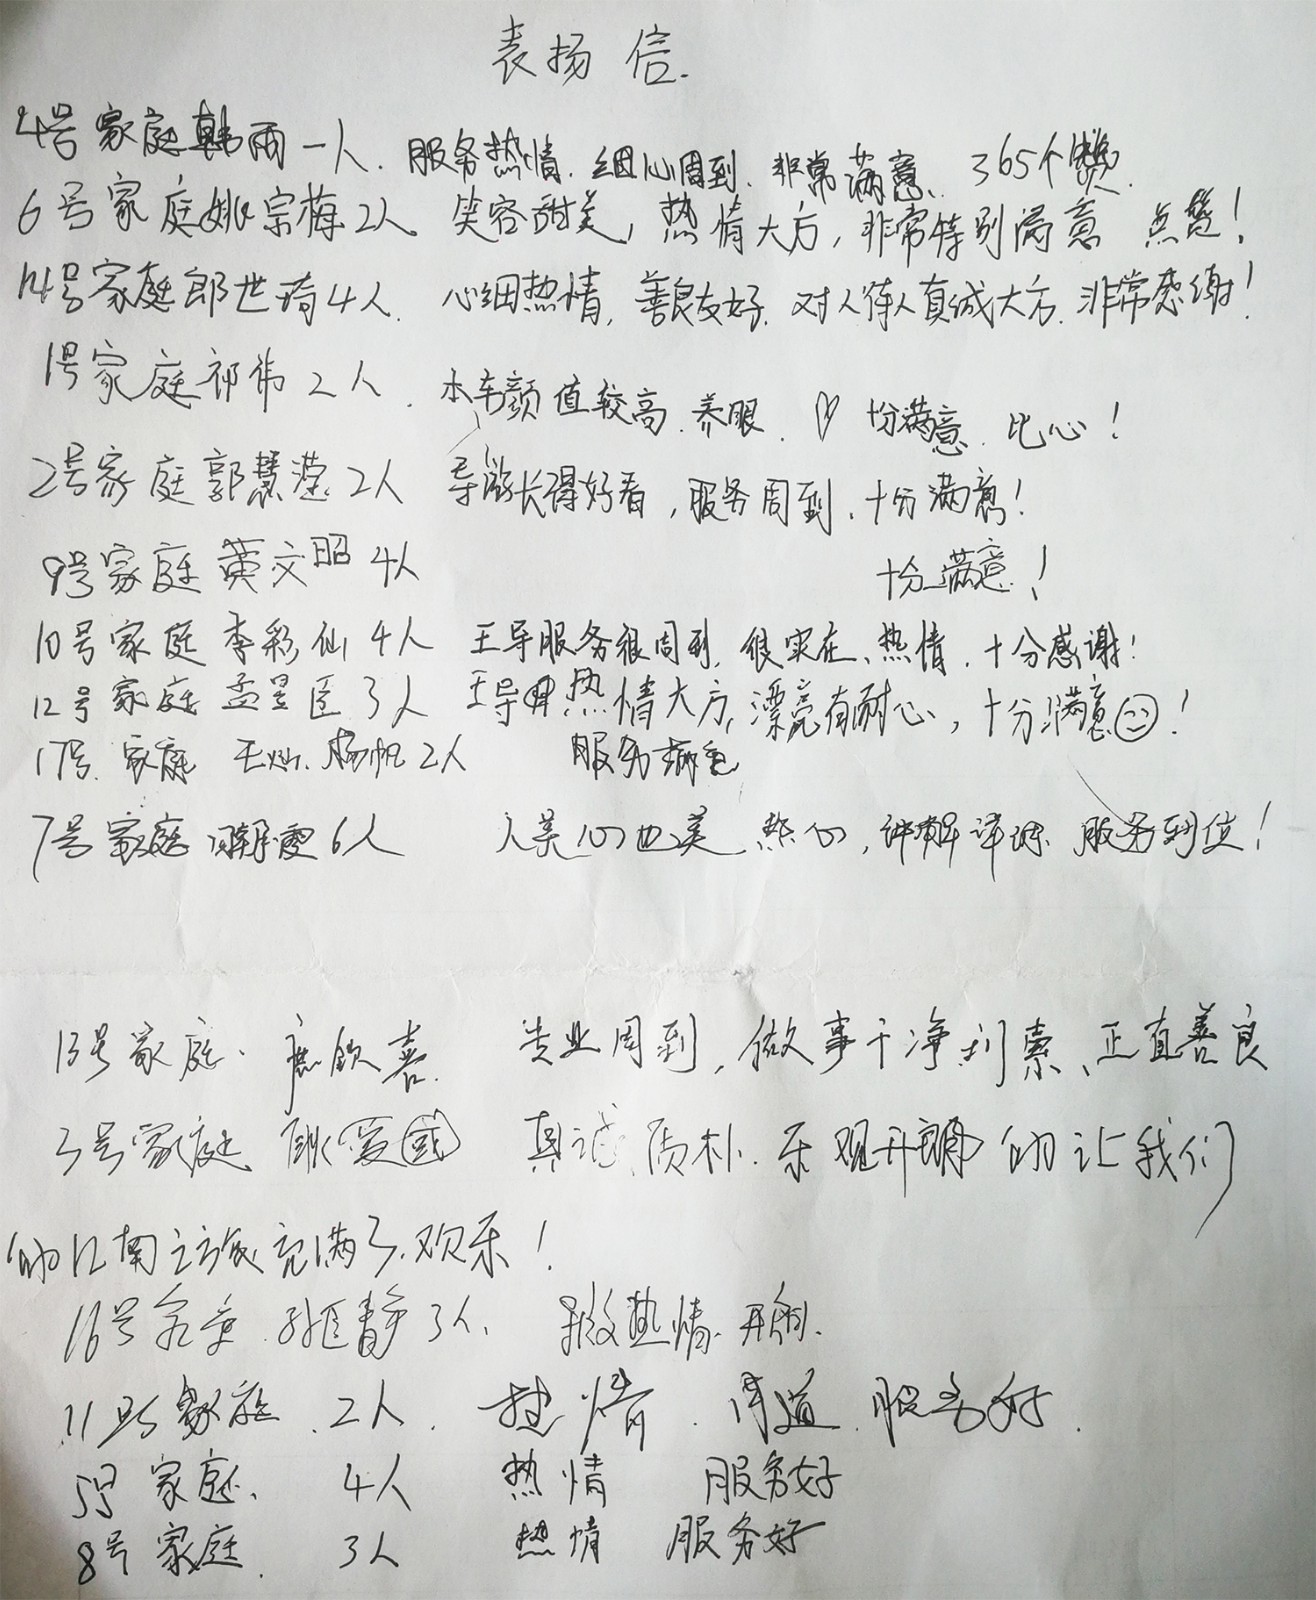 表扬信.
4号家庭韩雨一人. 服务热情. 细心周到. 非常满意. 365个赞
6号家庭姚宗梅2人 笑容甜美, 热情大方, 非常特别满意 点赞!
14号家庭郎世琦4人. 心细热情, 善良友好. 对人待人真诚大方. 非常感谢!
1号家庭祁伟2人. 本车颜值较高. 养眼. ♡ 十分满意. 比心!
2号家庭郭慧滢2人 导游长得好看, 服务周到. 十分满意!
9号家庭黄文昭4人 十分满意!
10号家庭李彩仙4人 王导服务很周到, 很实在、热情. 十分感谢!
12号家庭孟昱臣3人 王导热情大方, 漂亮有耐心, 十分满意☺!
17号. 家庭 王灿. 杨帆2人 服务
7号家庭 6人 人美心也美 热心, 讲解详细 服务到位!
13号家庭. 钦喜. 专业周到, 做事干净利索、正直善良
3号家庭 爱国 真诚、质朴. 乐观开朗的让我们
的江南之旅充满了欢乐!
16号家庭 静3人. 热情. 开朗.
11号家庭. 2人. 热情. 周道. 服务好.
5号家庭. 4人 热情 服务好
8号家庭. 3人 热情 服务好